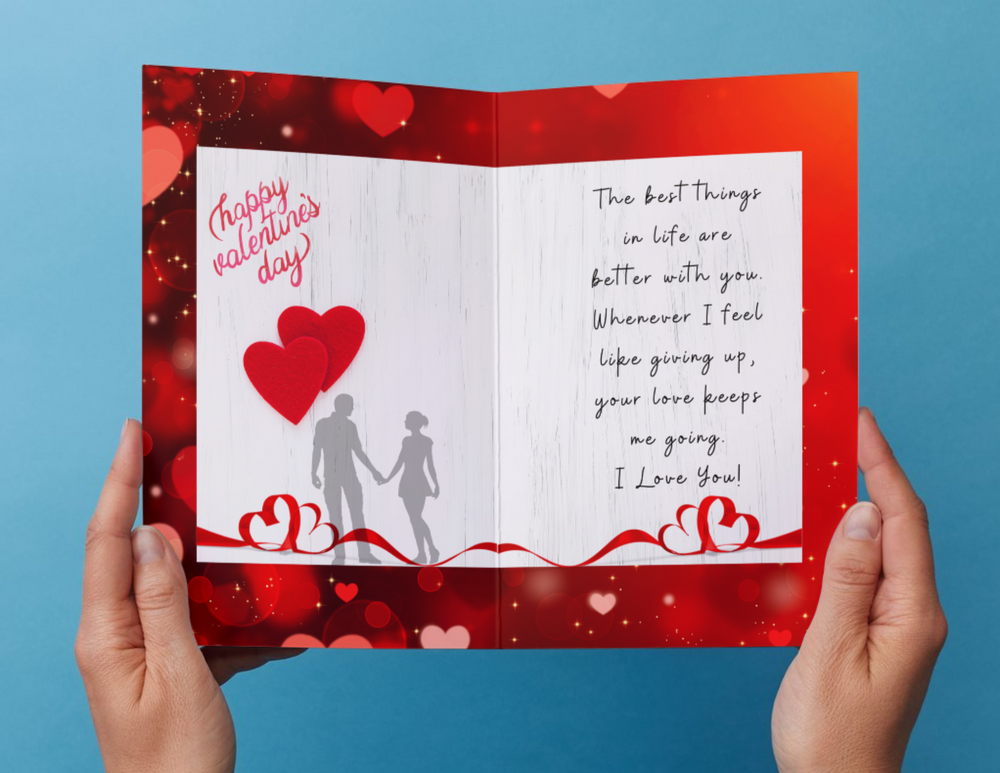 happy
valentine's
day
The best things
in life are
better with you.
Whenever I feel
like giving up,
your love keeps
me going.
I Love You!